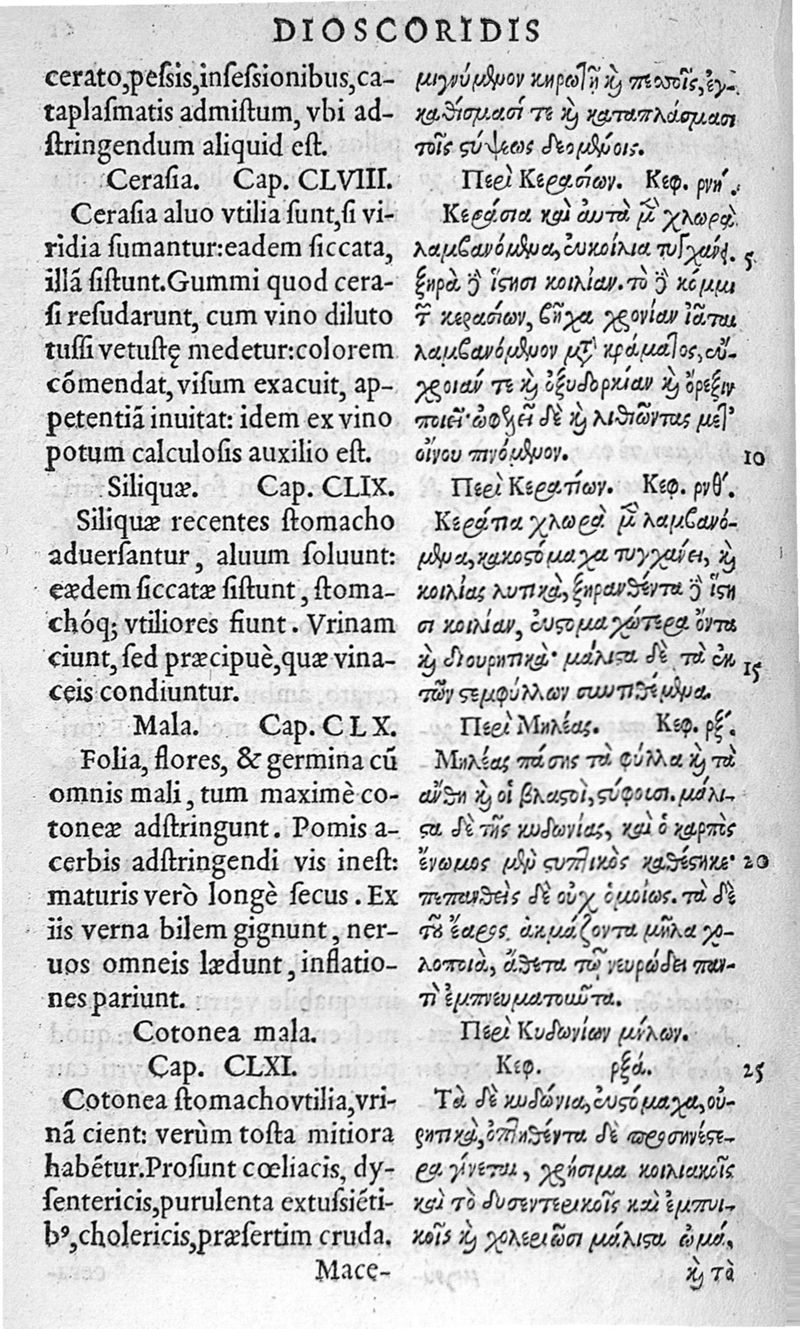 DIOSCORIDIS
cerato,peſsis,inſeſsionibus,ca-
taplaſmatis admiſtum, vbi ad-
ſtringendum aliquid eſt.
Ceraſia. Cap. CLVIII.
Ceraſia aluo vtilia ſunt,ſi vi-
ridia ſumantur:eadem ſiccata,
illā ſiſtunt.Gummi quod cera-
ſi reſudarunt, cum vino diluto
tuſſi vetuſtę medetur:colorem
cōmendat, viſum exacuit, ap-
petentiā inuitat: idem ex vino
potum calculoſis auxilio eſt.
Siliquæ. Cap. CLIX.
Siliquæ recentes ſtomacho
aduerſantur, aluum ſoluunt:
eædem ſiccatæ ſiſtunt, ſtoma-
chóq; vtiliores fiunt. Vrinam
ciunt, ſed præcipuè, quæ vina-
ceis condiuntur.
Mala. Cap. CLX.
Folia, flores, & germina cū
omnis mali, tum maximè co-
toneæ adſtringunt. Pomis a-
cerbis adſtringendi vis ineſt:
maturis verò longè ſecus. Ex
iis verna bilem gignunt, ner-
uos omneis lædunt, inflatio-
nes pariunt.
Cotonea mala.
Cap. CLXI.
Cotonea ſtomachovtilia,vri-
nā cient: verùm toſta mitiora
habētur.Proſunt cœliacis, dy-
ſentericis,purulenta extuſsiēti-
bꝰ,cholericis,præſertim cruda.
Mace-
μιγνύμενον κηρωτῇ καὶ πεσσοῖς, ἐγ-
καθίσμασί τε καὶ καταπλάσμασι
τοῖς στύψεως δεομένοις.
Περὶ Κερασίων. Κεφ. ρνή.
Κεράσια καὶ αὐτὰ μὲν χλωρὰ
λαμβανόμενα, εὐκοίλια τυγχάνει. 5
ξηρὰ δὲ ἵστησι κοιλίαν. τὸ δὲ κόμμι
τῶν κερασίων, βῆχα χρονίαν ἰᾶται
λαμβανόμενον μετὰ κράματος, εὔ-
χροιάν τε καὶ ὀξυδορκίαν καὶ ὄρεξιν
ποιεῖ· ὠφελεῖ δὲ καὶ λιθιῶντας μετ'
οἴνου πινόμενον. 10
Περὶ Κερατίων. Κεφ. ρνθ'.
Κεράτια χλωρὰ μὲν λαμβανό-
μενα, κακοστόμαχα τυγχάνει, καὶ
κοιλίας λυτικὰ, ξηρανθέντα δὲ ἵστη
σι κοιλίαν, εὐστομαχώτερα ὄντα
καὶ διουρητικὰ· μάλιστα δὲ τὰ ἐκ 15
τῶν στεμφύλλων συντιθέμενα.
Περὶ Μηλέας. Κεφ. ρξ'.
Μηλέας πάσης τὰ φύλλα καὶ τὰ
ἄνθη καὶ οἱ βλαστοὶ, στύφουσι. μάλι-
στα δὲ τῆς κυδωνίας, καὶ ὁ καρπὸς
ἔνωμος μὲν στυπτικὸς καθέστηκε· 20
πεπανθεὶς δὲ οὐχ ὁμοίως. τὰ δὲ
τοῦ ἔαρος ἀκμάζοντα μῆλα χο-
λοποιὰ, ἄθετα τῷ νευρώδει παν-
τὶ ἐμπνευματοῦντα.
Περὶ Κυδωνίων μήλων.
Κεφ. ρξά. 25
Τὰ δὲ κυδώνια, εὐστόμαχα, οὐ-
ρητικὰ, ὀπτηθέντα δὲ προσηνέστε-
ρα γίνεται, χρήσιμα κοιλιακοῖς
καὶ τὸ δυσεντερικοῖς καὶ ἐμπυι-
κοῖς καὶ χολεριῶσι μάλιστα ὠμά,
καὶ τὰ